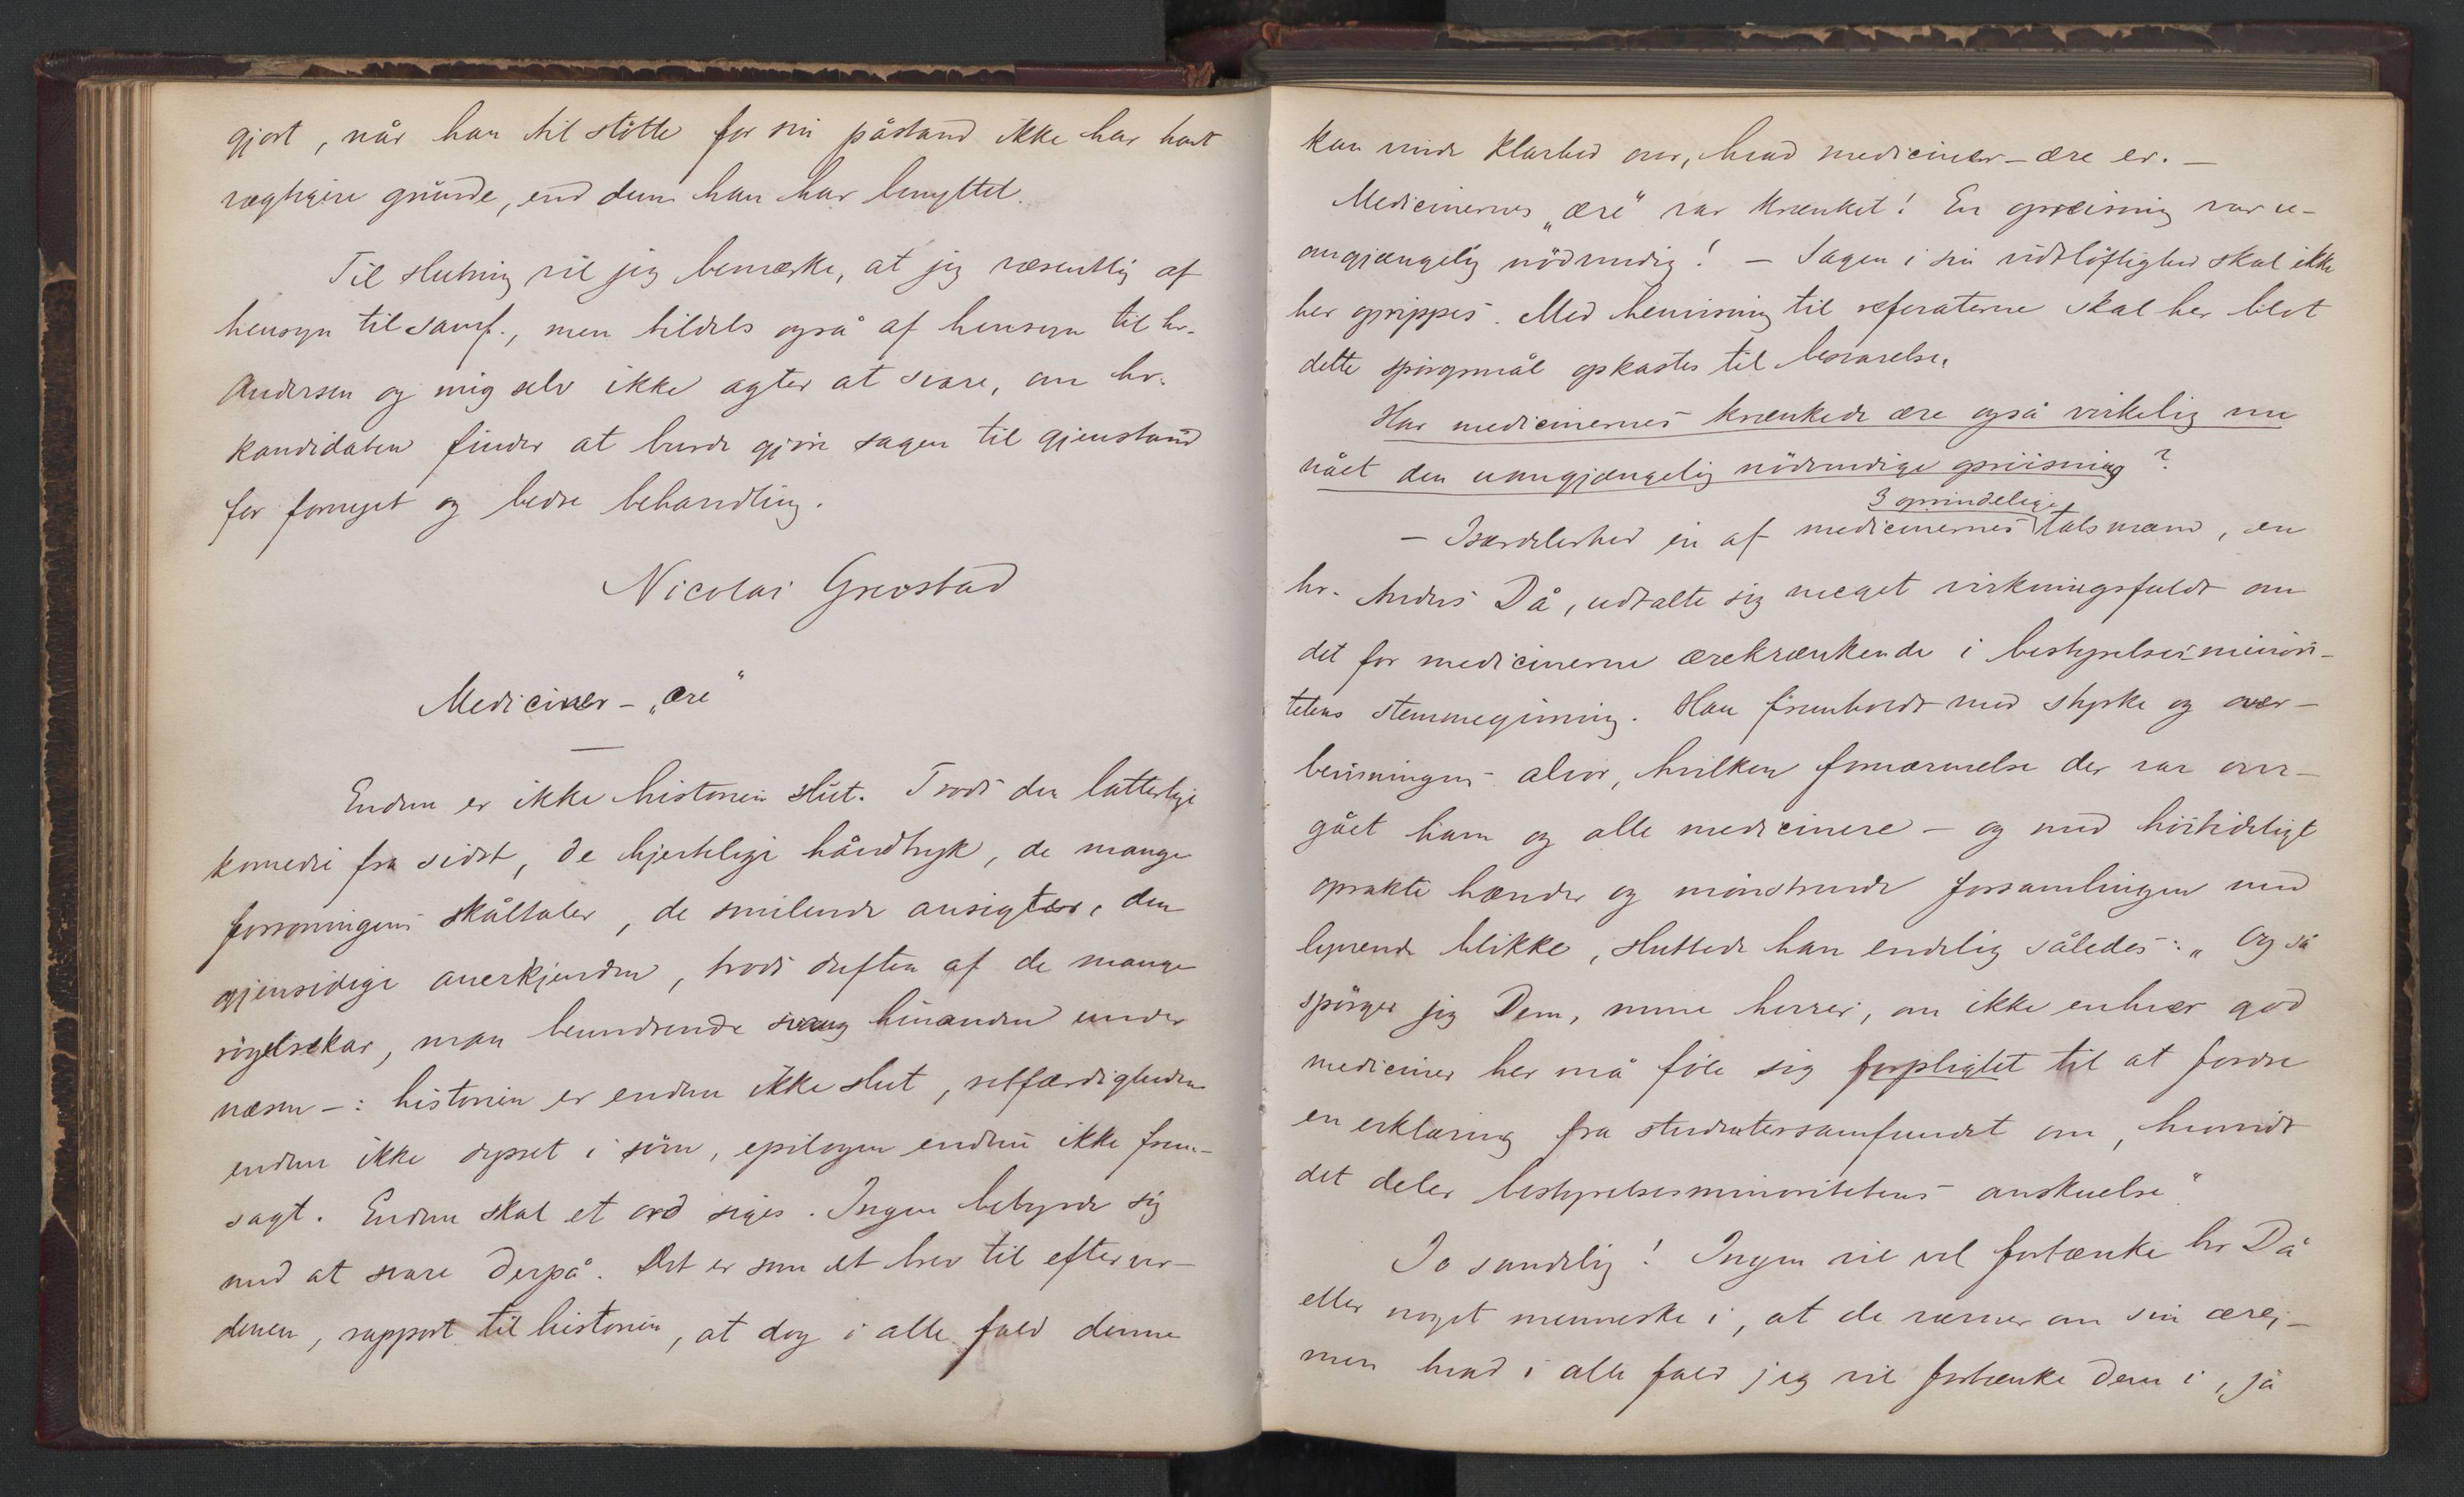 gjort, når han til støtte for sin påstand ikke har havt
vægtigere grunde, end dem han har benyttet.
Til slutning vil jeg bemærke, at jeg væsentlig af
hensyn til samf., men tildels også af hensyn til hr.
Andersen og mig selv ikke agter at svare, om hr.
kandidaten finder at burde gjøre sagen til gjenstand
for fornyet og bedre behandling.
Nicolai Grevstad
Mediciner-„ære“
Endnu er ikke historien slut. Trods den latterlige
komedie fra sidst, de hjertelige håndtryk, de mange
forsoningens skåltaler, de smilende ansigter, den
gjensidige anerkjenden, trods duften af de mange
røgelsekar, man beundrende svang hinanden under
næsen -: historien er endnu ikke slut, retfærdigheden
endnu ikke dysset i søvn, epilogen endnu ikke frem-
sagt. Endnu skal et ord siges. Ingen bebyrde sig
med at svare derpå. Det er som et brev til efterver-
denen, rapport til historien, at dog i alle fald denne
kan vinde klarhed over, hvad mediciner-ære er. -
Medicinernes „ære“ var krænket! En opreisning var u-
omgjængelig nødvendig! - Sagen i sin vidtløftighed skal ikke
her oprippes. Med henvisning til referaterne skal her blot
dette spørgsmål opkastes til besvarelse.
Har medicinernes krænkede ære også virkelig nu
nået den uomgjængelig nødvendige opreisning?
3 oprindelige
- Isærdeleshed én af medicinernes talsmænd, en
hr. Anders Då, udtalte sig meget virkningsfuldt om
det for medicinerne ærekrænkende i bestyrelsesminori-
tetens stemmegivning. Han fremholdt med styrke og over-
bevisningens alvor, hvilken fornærmelse der var over-
gået ham og alle medicinere - og med høitideligt
oprakte hænder og mønstrende forsamlingen med
lynende blikke, sluttede han endelig således: „Og så
spørger jeg Dem, mine herrer, om ikke enhver god
mediciner her må føle sig forpligtet til at fordre
en erklæring fra studentersamfundet om, hvorvidt
det deler bestyrelsesminoritetens anskuelse“.
Ja sandelig! Ingen vil vel fortænke hr Då
eller noget menneske i, at de værner om sin ære; -
men hvad i alle fald jeg vil fortænke dem i, ja